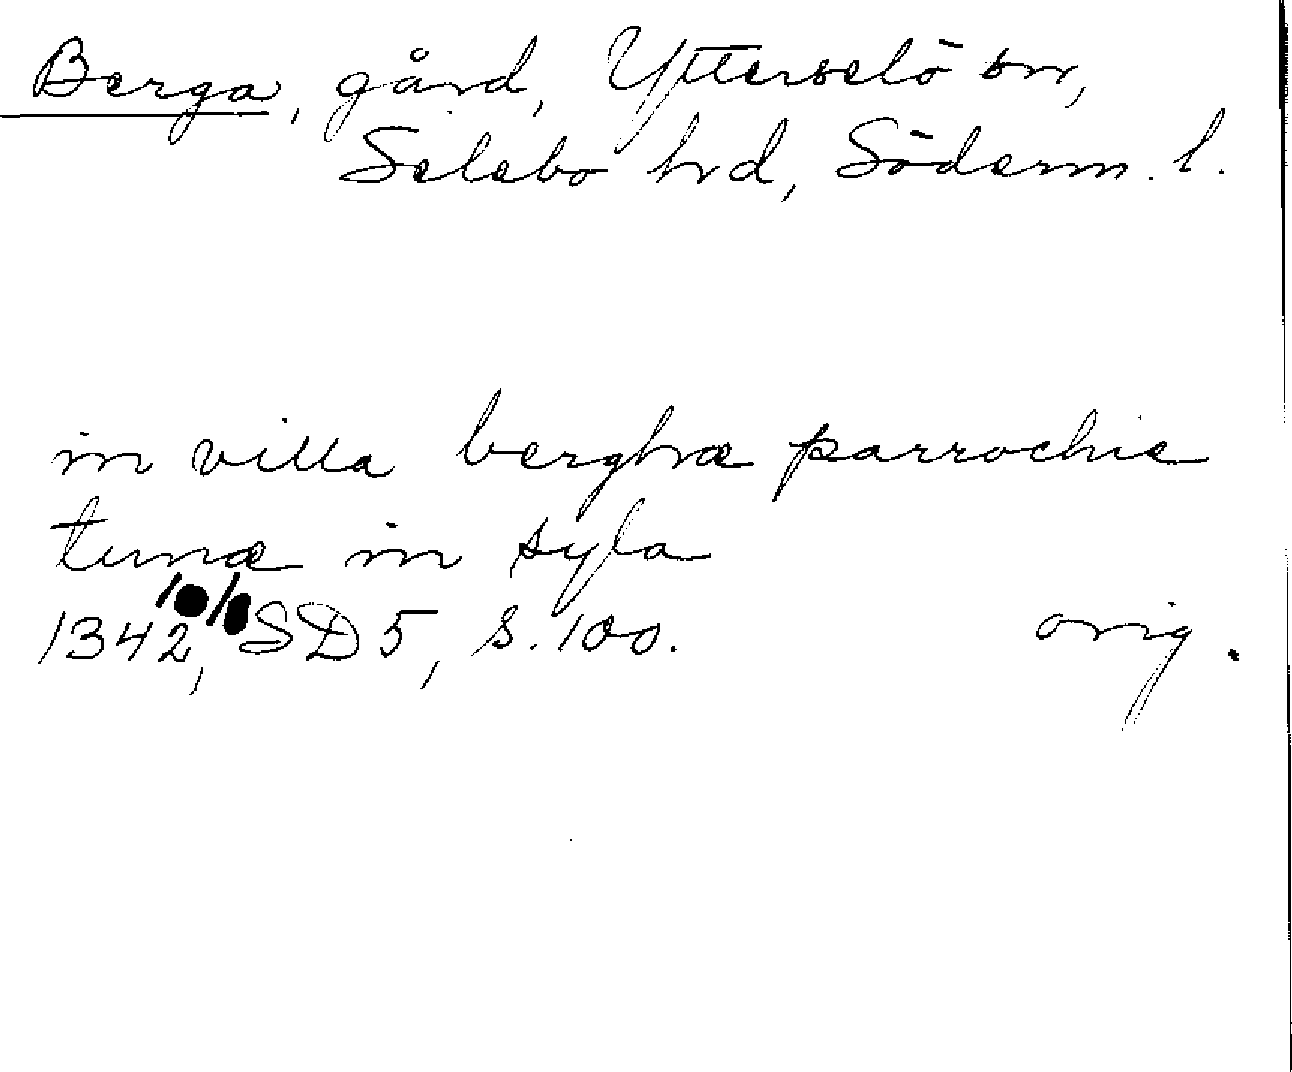 Berga, gård, Ytterselö sn,
Selebo hd, Söderm. l.
in villa berghæ parrochie
tunæ in syla
1342, SD 5, s. 100. orig.